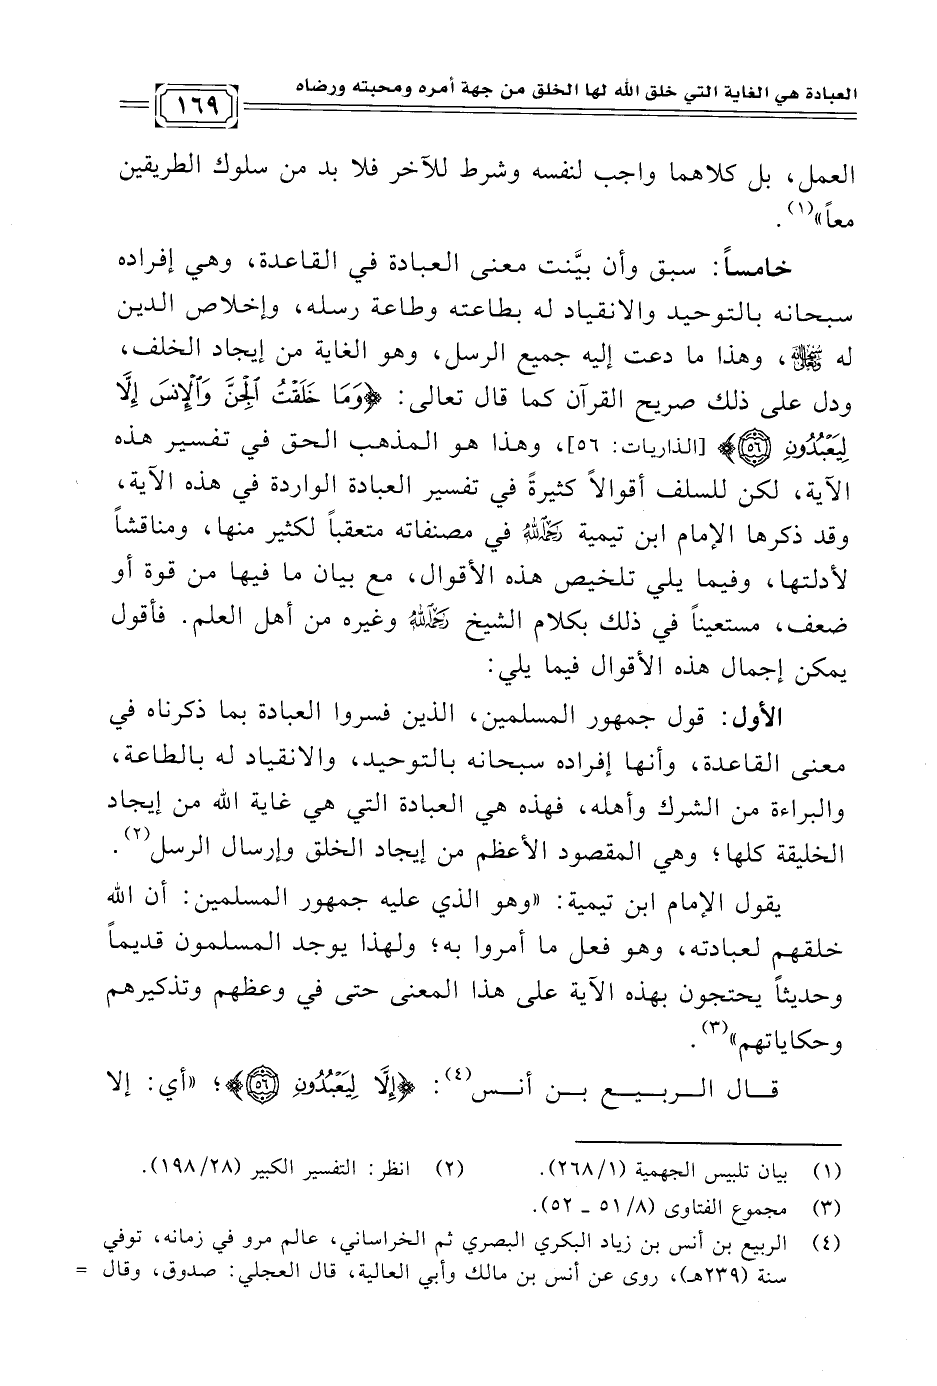 العبادة هي الغاية التي خلق الله لها الخلق من جهة أمره ومحبته ورضاه
١٦٩
العمل، بل كلاهما واجب لنفسه وشرط للآخر فلا بد من سلوك الطريقين
معاً»(١).
خامساً: سبق وأن بيَّنت معنى العبادة في القاعدة، وهي إفراده
سبحانه بالتوحيد والانقياد له بطاعته وطاعة رسله، وإخلاص الدين
له ﷾، وهذا ما دعت إليه جميع الرسل، وهو الغاية من إيجاد الخلف،
ودل على ذلك صريح القرآن كما قال تعالى: ﴿وَمَا خَلَقْتُ ٱلْجِنَّ وَٱلْإِنسَ إِلَّا
لِيَعْبُدُونِ ٥٦﴾ [الذاريات: ٥٦]، وهذا هو المذهب الحق في تفسير هذه
الآية، لكن للسلف أقوالاً كثيرةً في تفسير العبادة الواردة في هذه الآية،
وقد ذكرها الإمام ابن تيمية رَحِمَهُ اللهُ في مصنفاته متعقباً لكثير منها، ومناقشاً
لأدلتها، وفيما يلي تلخيص هذه الأقوال، مع بيان ما فيها من قوة أو
ضعف، مستعيناً في ذلك بكلام الشيخ رَحِمَهُ اللهُ وغيره من أهل العلم. فأقول
يمكن إجمال هذه الأقوال فيما يلي:
الأول: قول جمهور المسلمين، الذين فسروا العبادة بما ذكرناه في
معنى القاعدة، وأنها إفراده سبحانه بالتوحيد، والانقياد له بالطاعة،
والبراءة من الشرك وأهله، فهذه هي العبادة التي هي غاية الله من إيجاد
الخليقة كلها؛ وهي المقصود الأعظم من إيجاد الخلق وإرسال الرسل(٢).
يقول الإمام ابن تيمية: «وهو الذي عليه جمهور المسلمين: أن الله
خلقهم لعبادته، وهو فعل ما أمروا به؛ ولهذا يوجد المسلمون قديماً
وحديثاً يحتجون بهذه الآية على هذا المعنى حتى في وعظهم وتذكيرهم
وحكاياتهم»(٣).
قـال الـربـيـع بـن أنـس(٤): ﴿إِلَّا لِيَعْبُدُونِ ٥٦﴾؛ «أي: إلا
(١) بيان تلبيس الجهمية (٢٦٨/١). (٢) انظر: التفسير الكبير (١٩٨/٢٨).
(٣) مجموع الفتاوى (٥١/٨ ـ ٥٢).
(٤) الربيع بن أنس بن زياد البكري البصري ثم الخراساني، عالم مرو في زمانه، توفي
سنة (٢٣٩هـ)، روى عن أنس بن مالك وأبي العالية، قال العجلي: صدوق، وقال =